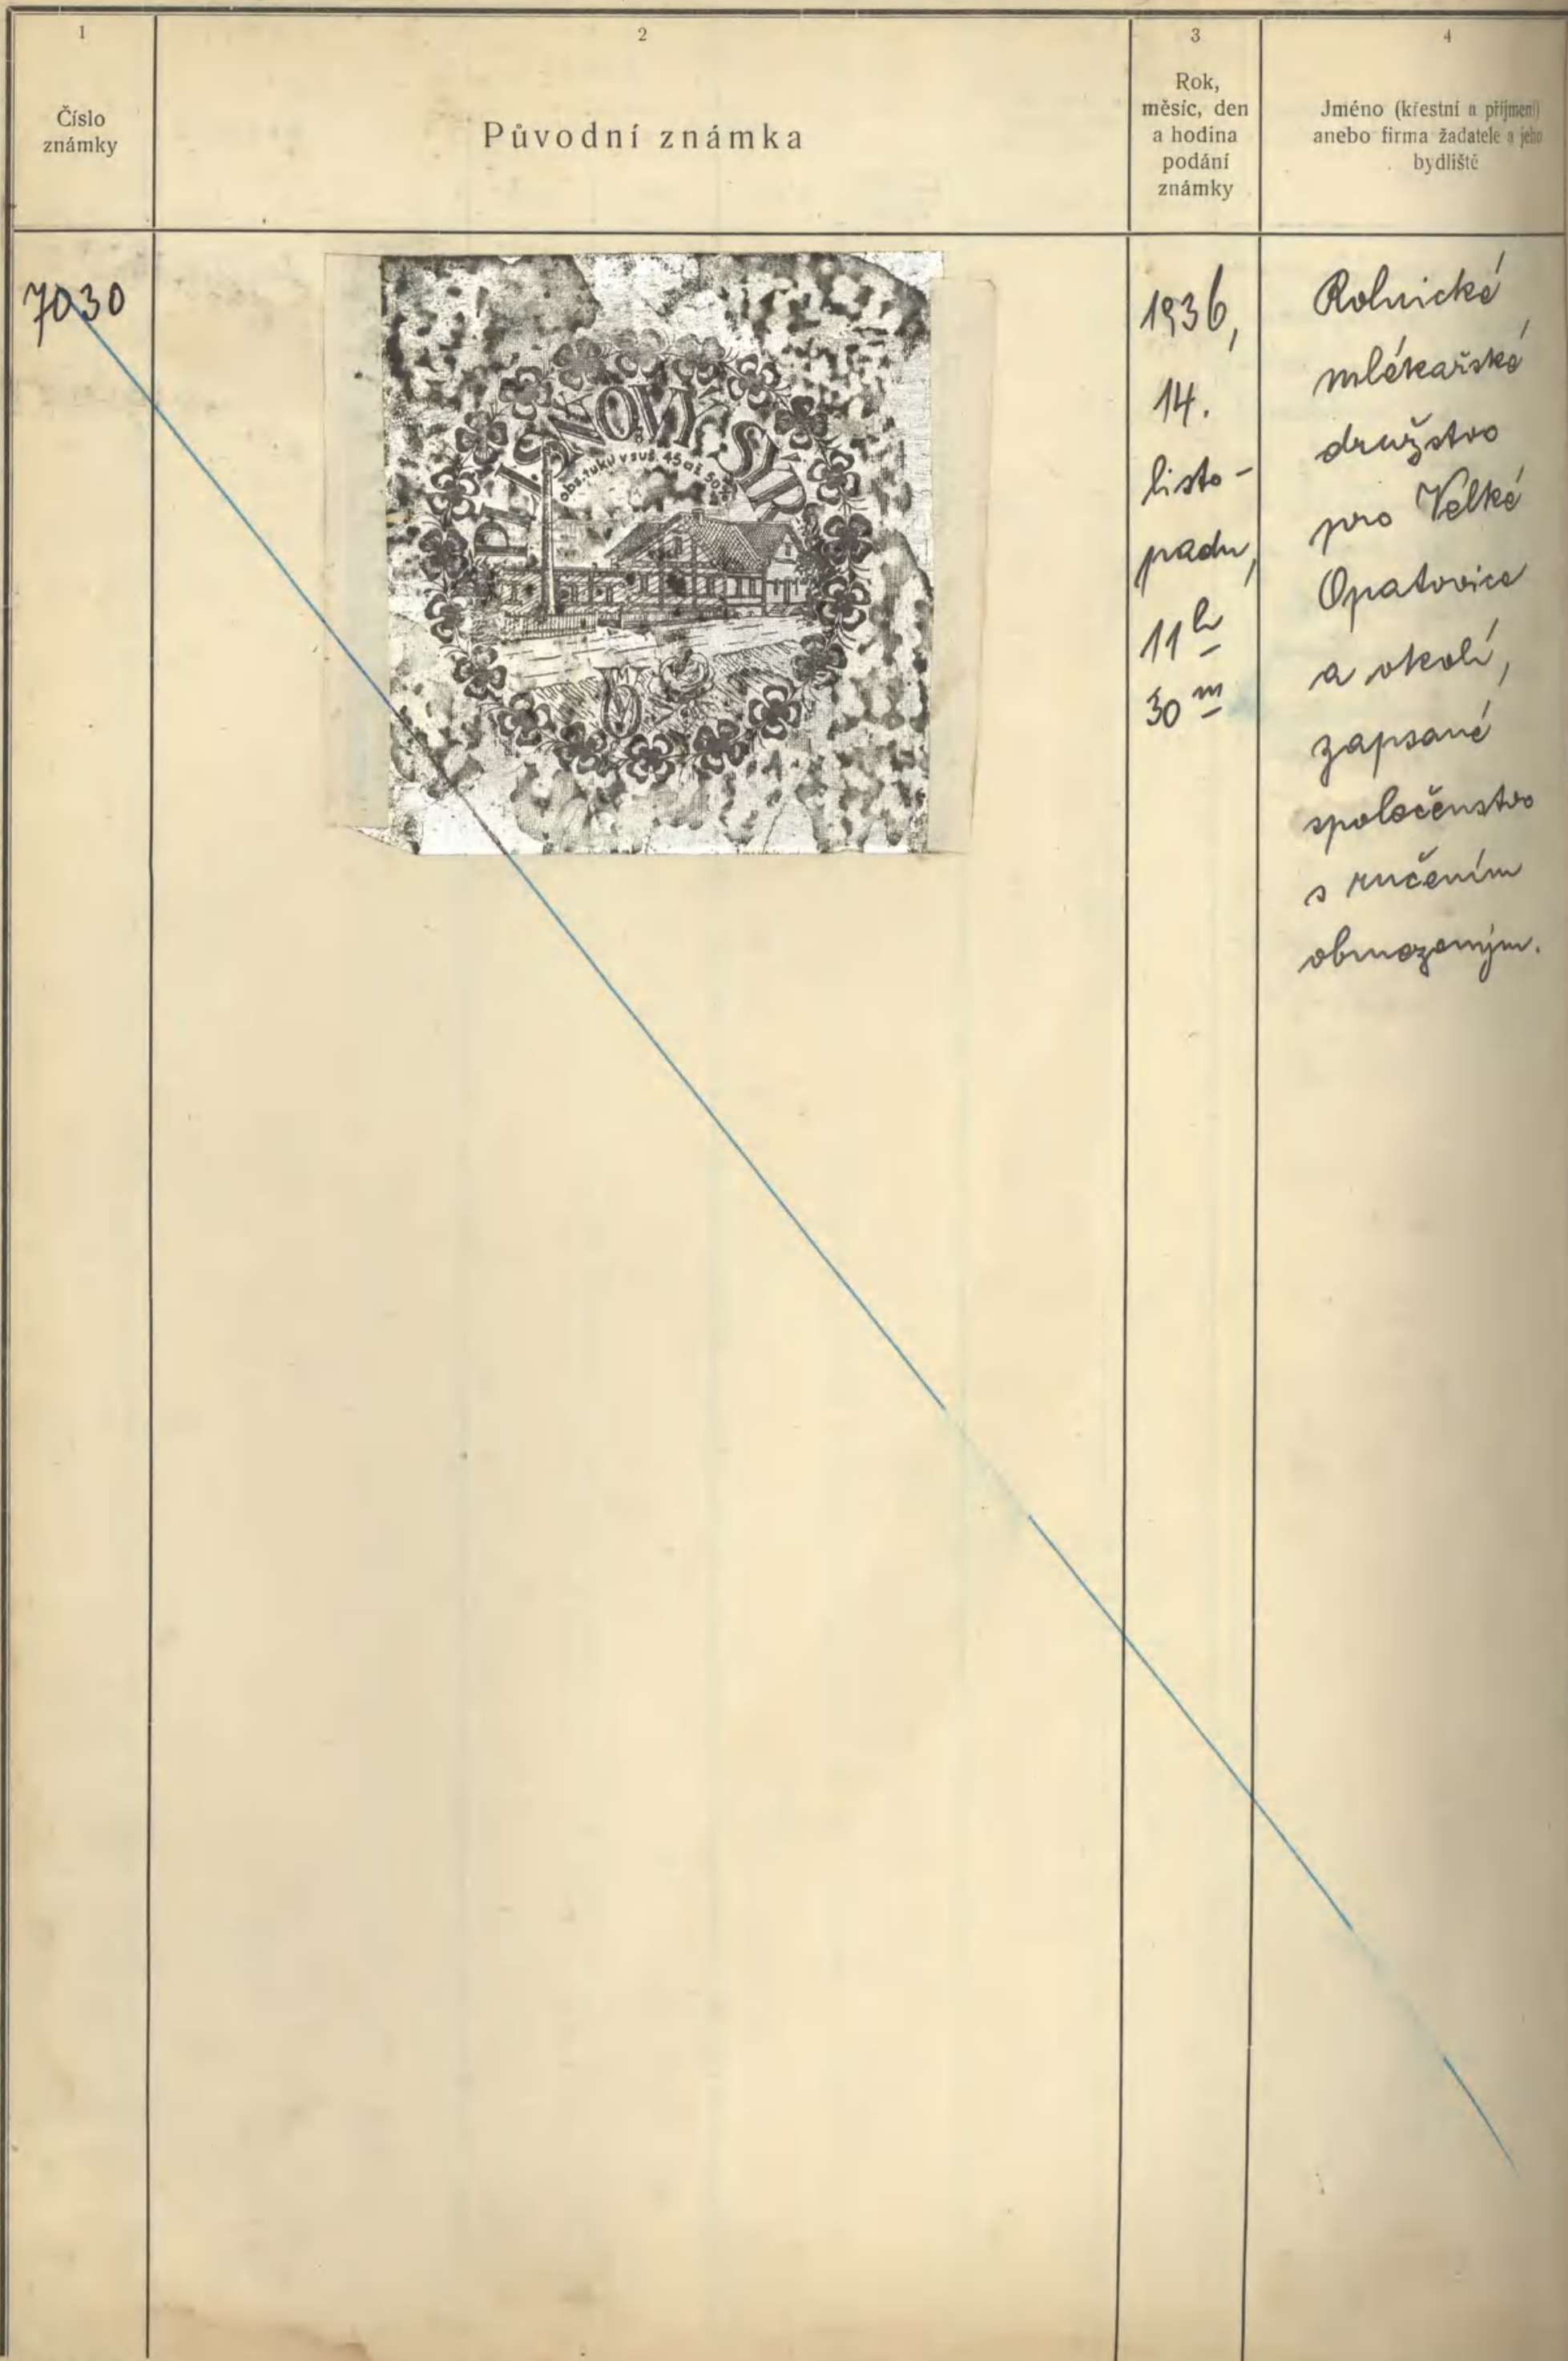 1
2
3
4
Číslo
známky
Původní známka
Rok,
měsíc, den
a hodina
podání
známky
Jméno (křestní a příjmení)
anebo firma žadatele a jeho
bydliště
7030
PLÍSŇOVÝ SÝR
obs. tuku v suš. 45 až 50%
1936,
14.
listo-
padu,
11h
30m
Rolnické
mlékařské
družstvo
pro Velké
Opatovice
a okolí,
zapsané
společenstvo
s ručením
obmezeným.